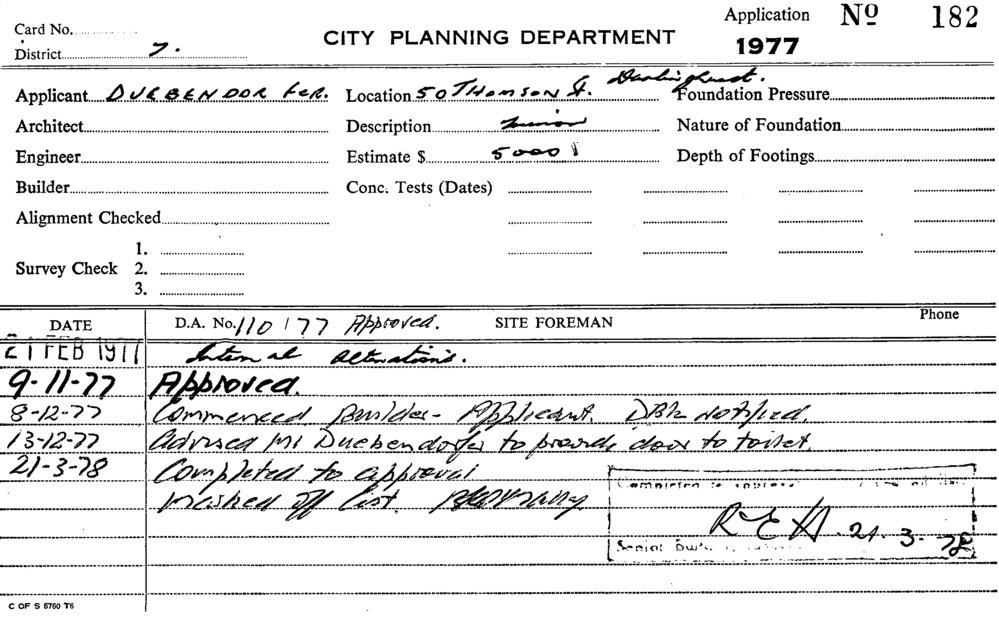 Card No. Application No 182
District 7. CITY PLANNING DEPARTMENT 1977
Applicant DUEBENDORFER. Location 50 THOMSON St. Darlinghurst. Foundation Pressure
Architect Description Nature of Foundation
Engineer Estimate $ 5000 Depth of Footings
Builder Conc. Tests (Dates)
Alignment Checked
1.
Survey Check 2.
3.
DATE D.A. No. 110/77 Approved. SITE FOREMAN Phone
21 FEB 1977 Internal alterations.
9-11-77 Approved.
8-12-77 Commenced Builder - Applicant. notified.
13-12-77 Advised Mr Duebendorfer to provide door to toilet.
21-3-78 Completed to approval
off list.
Completed to
21.3.78
Senior
C OF S 5760 T6